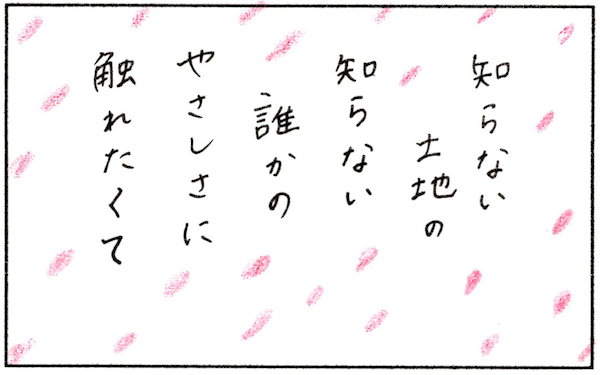 知らない
土地の
知らない
誰かの
やさしさに
触れたくて